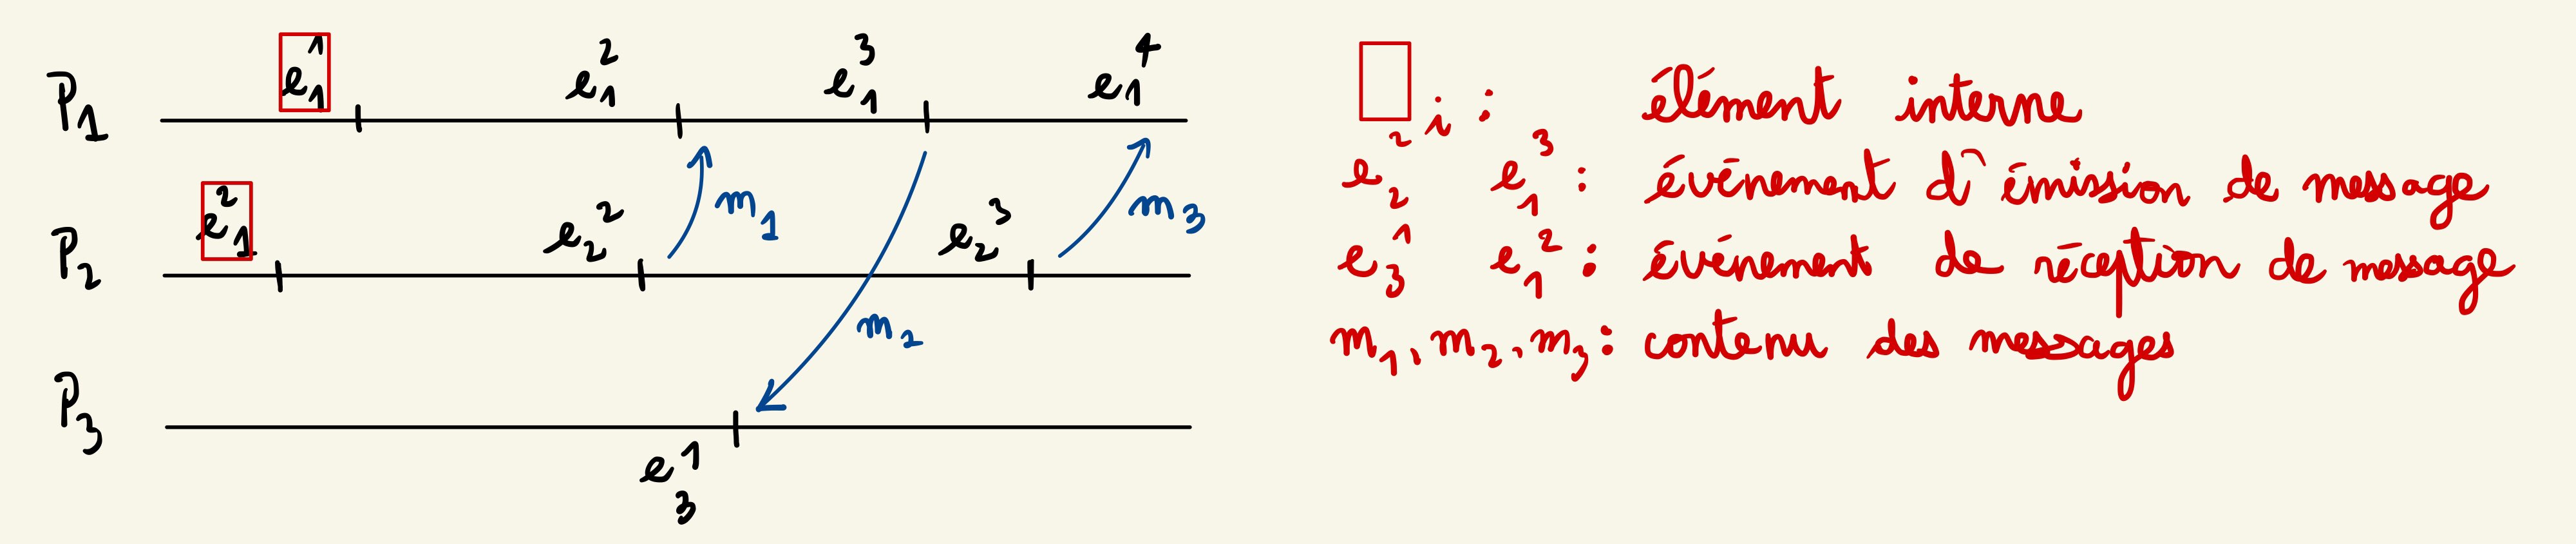 P₁ e₁¹ e₁² e₁³ e₁⁴
m₁ m₃
P₂ e₁² e₂² e₂³
m₂
P₃ e₃¹
□ i : élément interne
e₂² e₁³ : événement d'émission de message
e₃¹ e₁² : événement de réception de message
m₁, m₂, m₃ : contenu des messages